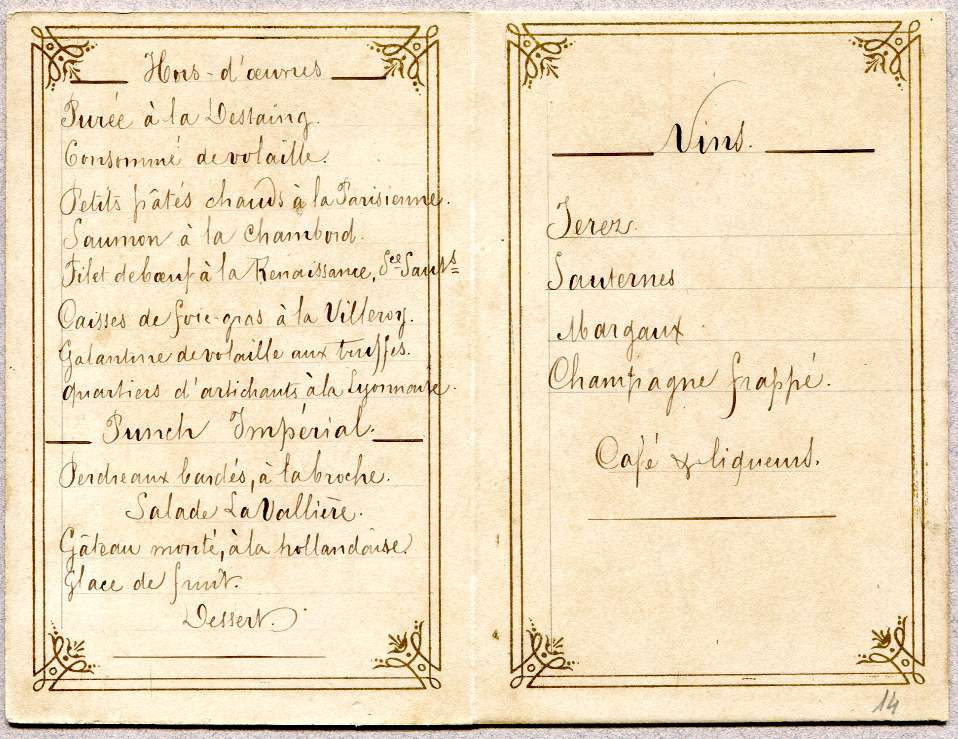 Hors-d'œuvres
Purée à la Destaing.
Consommé de volaille.
Petits pâtés chauds à la Parisienne.
Saumon à la Chambord.
Filet de bœuf à la Renaissance, Sce
Caisses de foie-gras à la Villeroy.
Galantine de volaille aux truffes.
Quartiers d'artichauts à la Lyonnaise.
Punch Impérial.
Perdreaux bardés, à la broche.
Salade La Vallière.
Gâteau monté, à la hollandaise.
Glace de fruit.
Dessert.
Vins.
Jerez.
Sauternes
Margaux.
Champagne frappé.
Café & liqueurs.
14